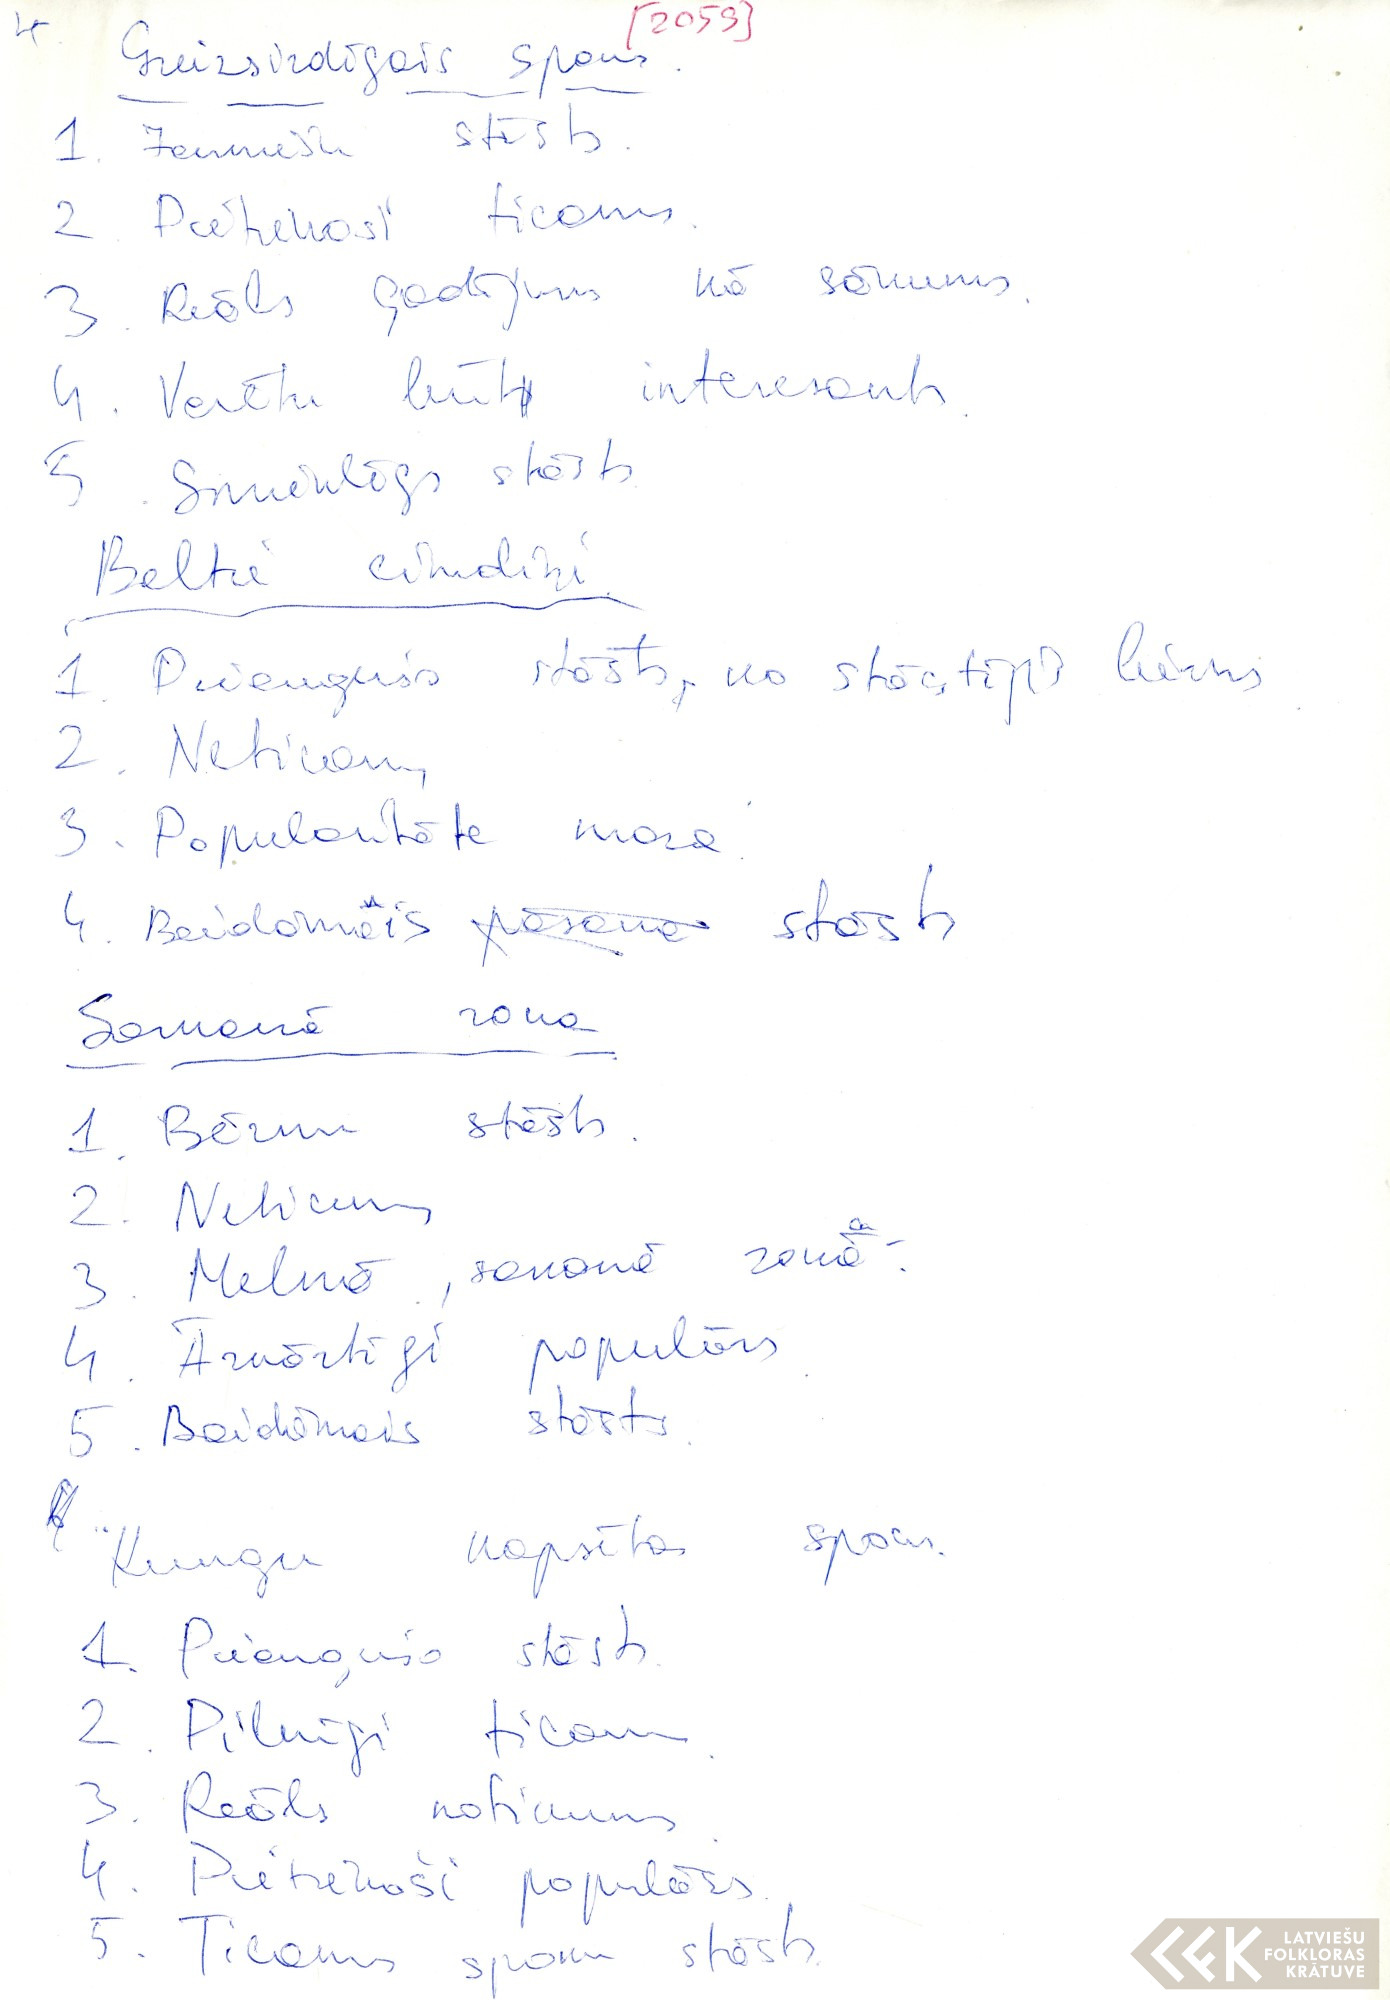 4. [2059]
Greizsirdīgais spoks.
1. Jauniešu stāsts.
2. Pietiekoši ticams.
3. Reāls gadījums kā sākums.
4. Varētu būt interesants.
5. Smieklīgs stāsts
Baltie cimdiņi.
1. Pieaugušo stāsts, no stāstījis bērns.
2. Neticams
3. Popularitāte maza.
4. Baidāmais stāsts
Sarkanā roka
1. Bērnu stāsts.
2. Neticams
3. Melnā, sarkanā roka -.
4. Ārkārtīgi populārs.
5. Baidāmais stāsts.
Kungu kapsētas spoks.
1. Pieaugušo stāsts.
2. Pilnīgi ticams.
3. Reāls notikums.
4. Pietiekoši populārs.
5. Ticams spoku stāsts.
LATVIEŠU
FOLKLORAS
KRĀTUVE